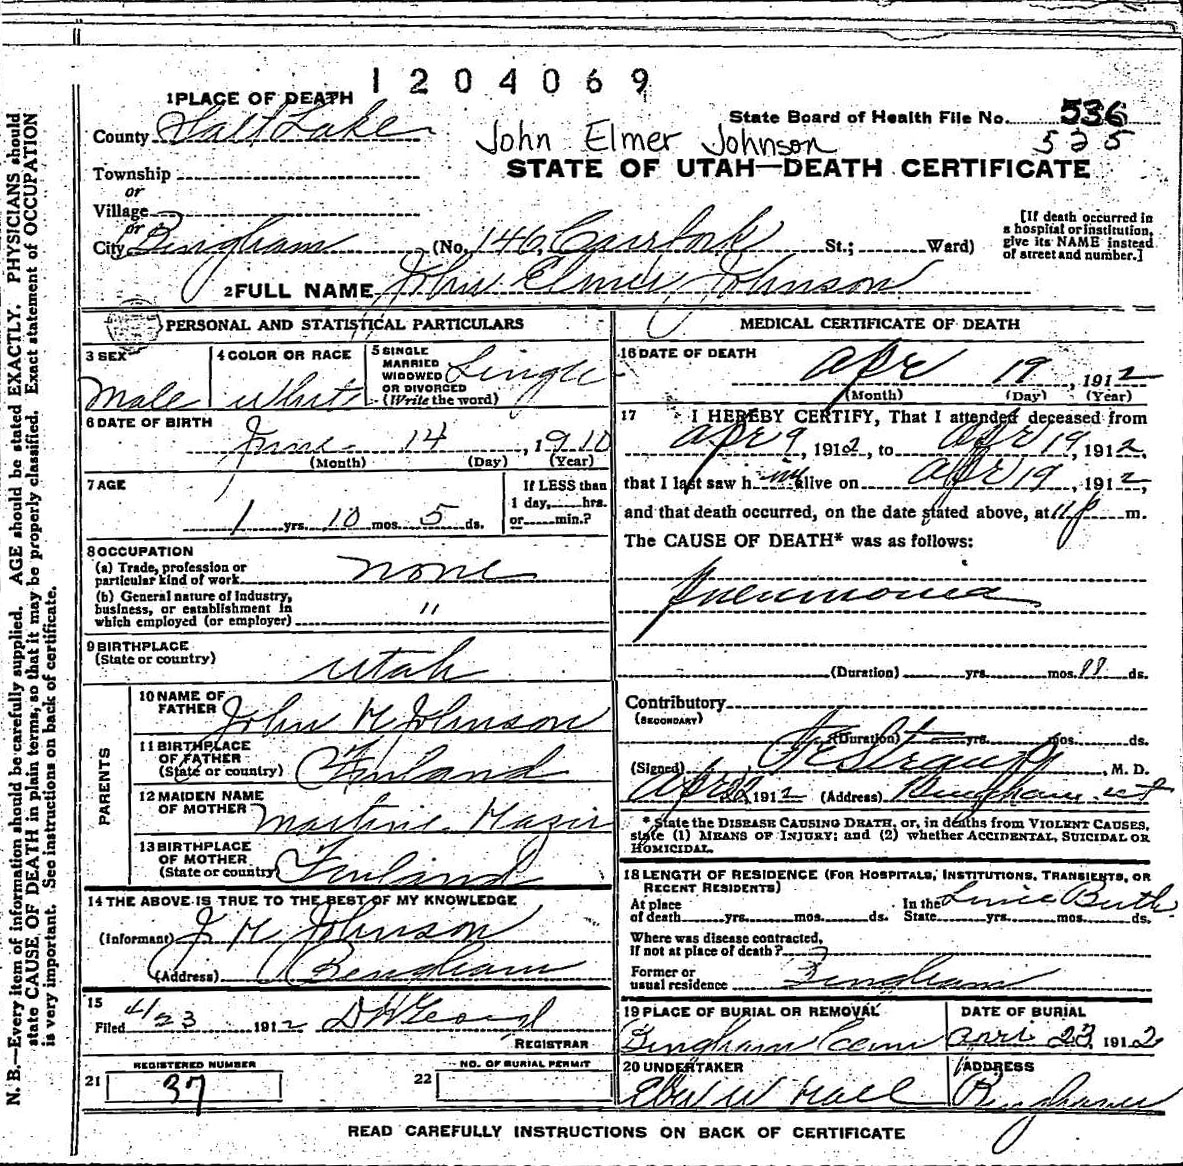 1204069
1 PLACE OF DEATH
County Salt Lake
State Board of Health File No. 536
525
John Elmer Johnson
STATE OF UTAH—DEATH CERTIFICATE
Township
or
Village
or
City Bingham (No. 146, St.; Ward)
[If death occurred in a hospital or institution, give its NAME instead of street and number.]
2 FULL NAME John Elmer Johnson
PERSONAL AND STATISTICAL PARTICULARS
3 SEX Male
4 COLOR OR RACE White
5 SINGLE MARRIED WIDOWED OR DIVORCED (Write the word) Single
6 DATE OF BIRTH
June 14, 1910
(Month) (Day) (Year)
7 AGE
1 yrs. 10 mos. 5 ds.
If LESS than 1 day, hrs. or min.?
8 OCCUPATION
(a) Trade, profession or particular kind of work none
(b) General nature of industry, business, or establishment in which employed (or employer) "
9 BIRTHPLACE
(State or country) Utah
PARENTS
10 NAME OF FATHER John H Johnson
11 BIRTHPLACE OF FATHER (State or country) Finland
12 MAIDEN NAME OF MOTHER
13 BIRTHPLACE OF MOTHER (State or country) Finland
14 THE ABOVE IS TRUE TO THE BEST OF MY KNOWLEDGE
(Informant) J H Johnson
(Address) Bingham
15
Filed 4/23 1912
REGISTRAR
REGISTERED NUMBER
21 37
NO. OF BURIAL PERMIT
22
MEDICAL CERTIFICATE OF DEATH
16 DATE OF DEATH
Apr 19, 1912
(Month) (Day) (Year)
17 I HEREBY CERTIFY, That I attended deceased from
Apr 9, 1912, to Apr 19, 1912,
that I last saw h im alive on Apr 19, 1912,
and that death occurred, on the date stated above, at 11 p m.
The CAUSE OF DEATH* was as follows:
Pneumonia
(Duration) yrs. mos. ds.
Contributory
(SECONDARY)
(Duration) yrs. mos. ds.
(Signed) , M. D.
Apr 1912 (Address) Bingham ut
*State the DISEASE CAUSING DEATH, or, in deaths from VIOLENT CAUSES, state (1) MEANS OF INJURY; and (2) whether ACCIDENTAL, SUICIDAL OR HOMICIDAL.
18 LENGTH OF RESIDENCE (FOR HOSPITALS, INSTITUTIONS, TRANSIENTS, OR RECENT RESIDENTS)
At place of death yrs. mos. ds. In the State Since Birth yrs. mos. ds.
Where was disease contracted, if not at place of death?
Former or usual residence Bingham
19 PLACE OF BURIAL OR REMOVAL
Bingham Cem
DATE OF BURIAL
April 23, 1912
20 UNDERTAKER
ADDRESS
Bingham
READ CAREFULLY INSTRUCTIONS ON BACK OF CERTIFICATE
N. B.—Every item of information should be carefully supplied. AGE should be stated EXACTLY. PHYSICIANS should
state CAUSE OF DEATH in plain terms, so that it may be properly classified. Exact statement of OCCUPATION
is very important. See instructions on back of certificate.